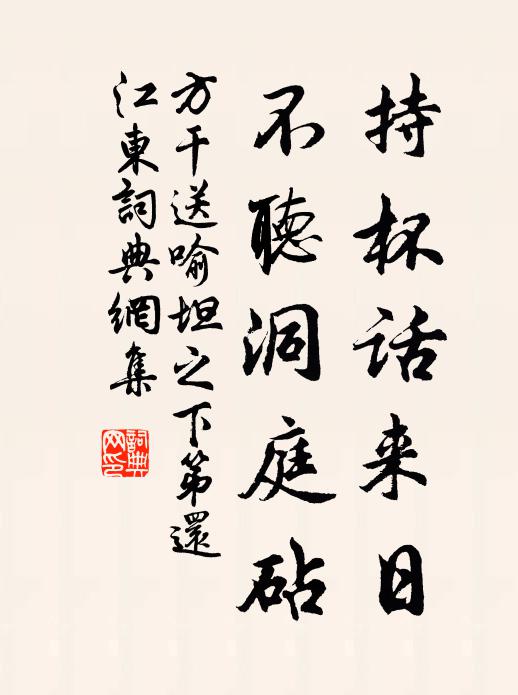 持杯话来日
不聴洞庭砧
方干送喻坦之下第還
江東詞典網集
詞典
网印